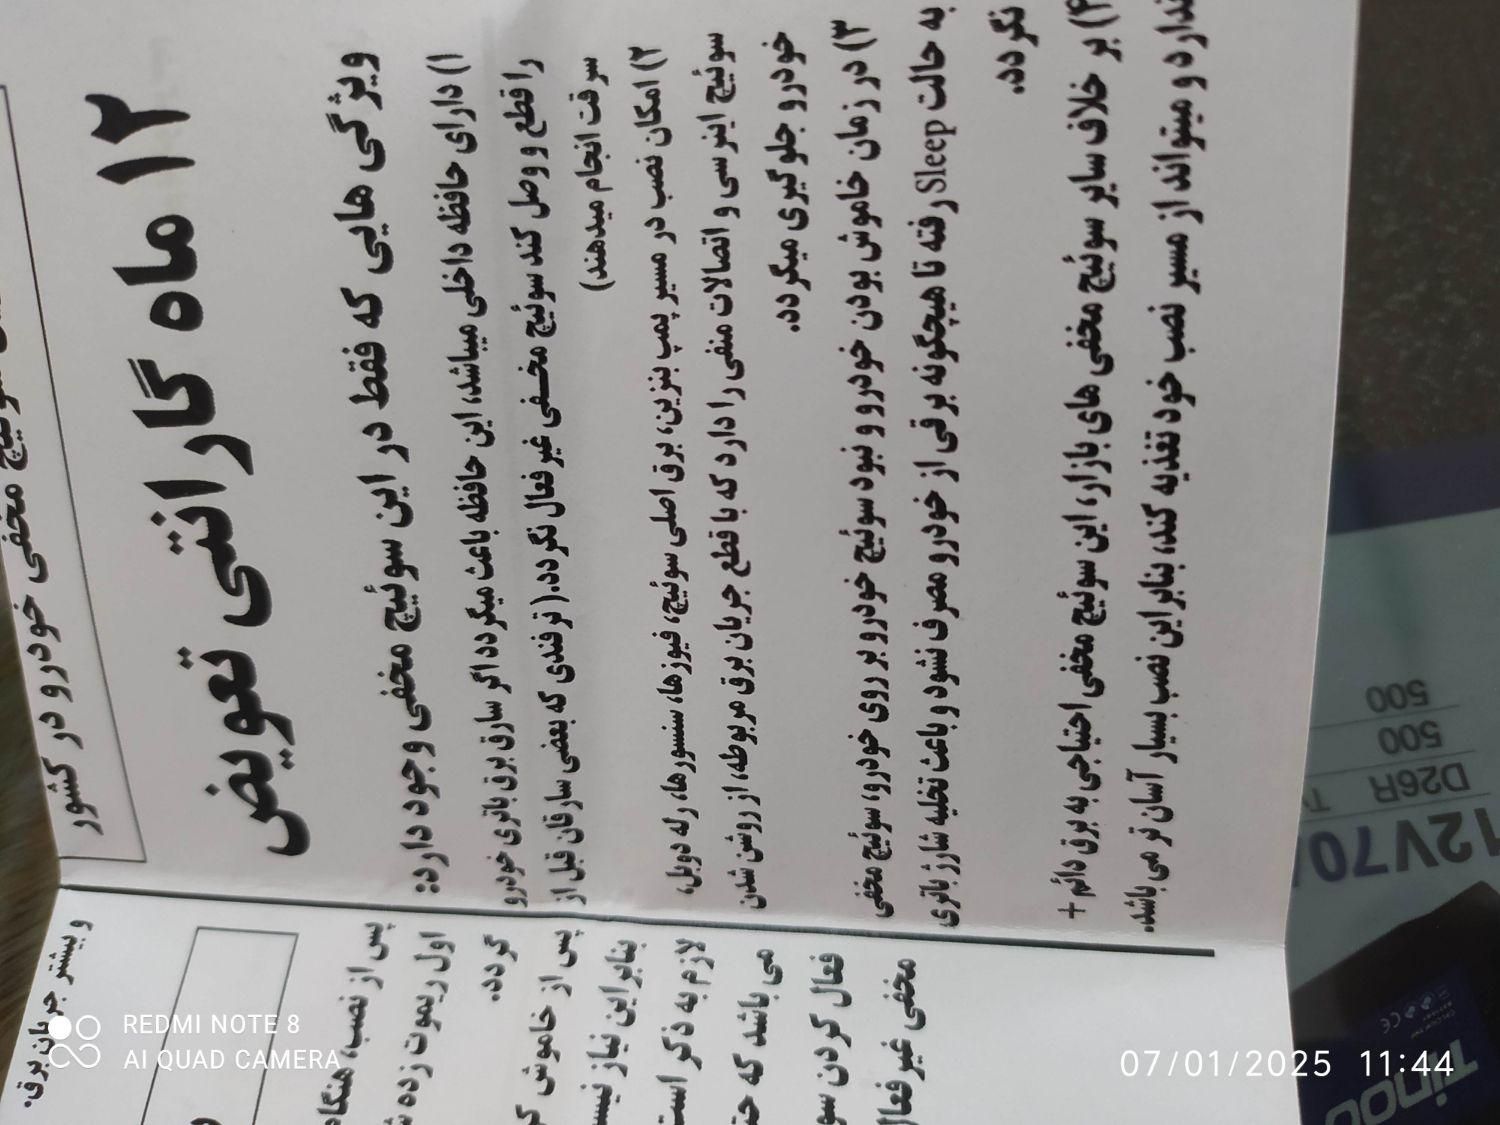 سوئیچ مخفی خودرو در کشور
۱۲ ماه گارانتی تعویض
ویژگی هایی که فقط در این سوئیچ مخفی وجود دارد:
۱) دارای حافظه داخلی میباشد، این حافظه باعث میگردد اگر سارق برق باتری خودرو
را قطع و وصل کند سوئیچ مخفی غیر فعال نگردد.( ترفندی که بعضی سارقان قبل از
سرقت انجام میدهند)
۲) امکان نصب در مسیر پمپ بنزین، برق اصلی سوئیچ، فیوزها، سنسورها، رله دوبل،
سوئیچ اینرسی و اتصالات منفی را دارد که با قطع جریان برق مربوطه، از روشن شدن
خودرو جلوگیری میگردد.
۳) در زمان خاموش بودن خودرو و نبود سوئیچ خودرو بر روی خودرو، سوئیچ مخفی
به حالت Sleep رفته تا هیچگونه برقی از خودرو مصرف نشود و باعث تخلیه شارژ باتری
نگردد.
۴) بر خلاف سایر سوئیچ مخفی های بازار، این سوئیچ مخفی احتیاجی به برق دائم +
ندارد و میتواند از مسیر نصب خود تغذیه کند، بنابراین نصب بسیار آسان تر می باشد.
و بیشتر جریان برق.
پس از نصب، هنگا
اول ریموت زده ش
گردد.
پس از خاموش کر
بنابراین نیاز نیس
لازم به ذکر است
می باشد که حت
فعال کردن سو
مخفی غیرفعال
12V70
D26R
500
500
CE
REDMI NOTE 8
AI QUAD CAMERA
07/01/2025 11:44